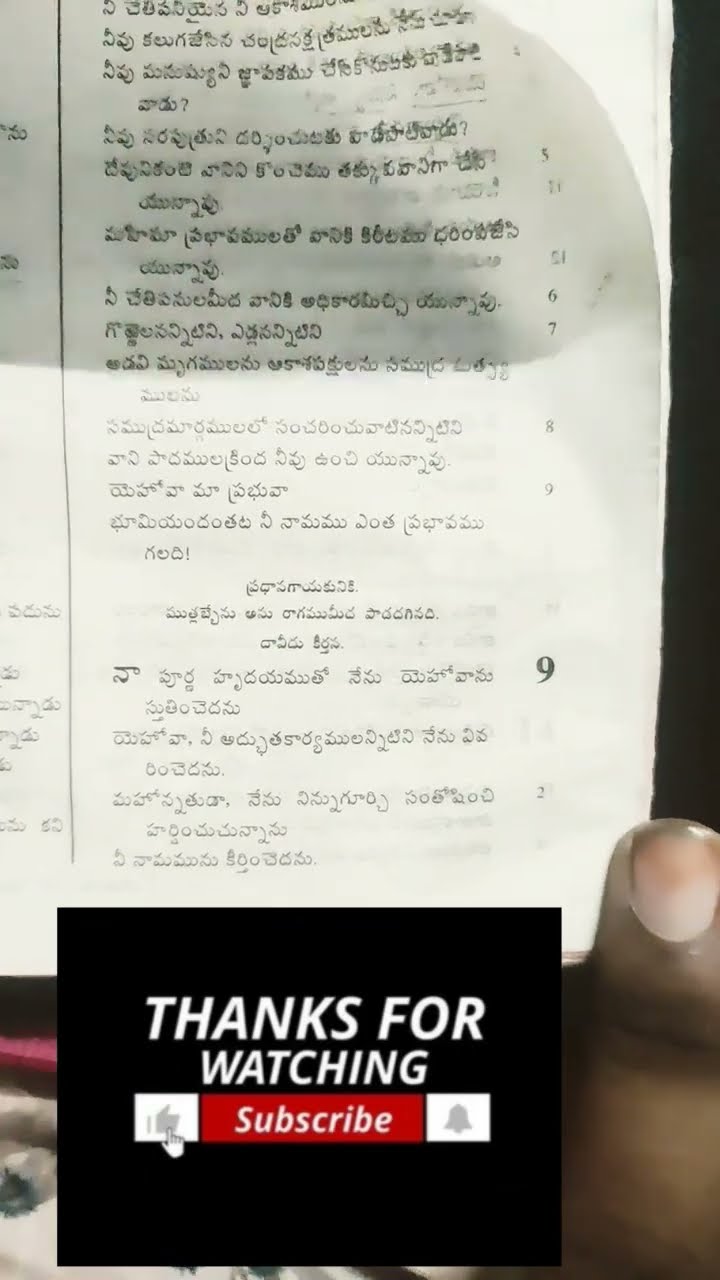 నీ చేతిపనియైన నీ
నీవు కలుగజేసిన చంద్రనక్షత్రములను నేను చూడగా
నీవు మనుష్యుని జ్ఞాపకము చేసికొనుటకు వా డేపాటి
వాడు?
నీవు నరపుత్రుని దర్శించుటకు వాడేపాటివాడు?
దేవునికంటె వానిని కొంచెము తక్కువవానిగా చేసి 5
యున్నావు.
మహిమా ప్రభావములతో వానికి కిరీటము ధరింపజేసి
యున్నావు.
నీ చేతిపనులమీద వానికి అధికారమిచ్చి యున్నావు. 6
గొఱ్ఱెలనన్నిటిని, ఎడ్లనన్నిటిని 7
అడవి మృగములను ఆకాశపక్షులను సముద్ర మత్స్య
ములను
సముద్రమార్గములలో సంచరించువాటినన్నిటిని 8
వాని పాదములక్రింద నీవు ఉంచి యున్నావు.
యెహోవా మా ప్రభువా 9
భూమియందంతట నీ నామము ఎంత ప్రభావము
గలది!
ప్రధానగాయకునికి.
ముత్లబ్బేను అను రాగముమీద పాడదగినది.
దావీదు కీర్తన.
నా పూర్ణ హృదయముతో నేను యెహోవాను 9
స్తుతించెదను
యెహోవా, నీ అద్భుతకార్యములన్నిటిని నేను వివ
రించెదను.
మహోన్నతుడా, నేను నిన్నుగూర్చి సంతోషించి 2
హర్షించుచున్నాను
నీ నామమును కీర్తించెదను.
పడును
న్నాడు
కని
THANKS FOR
WATCHING
Subscribe